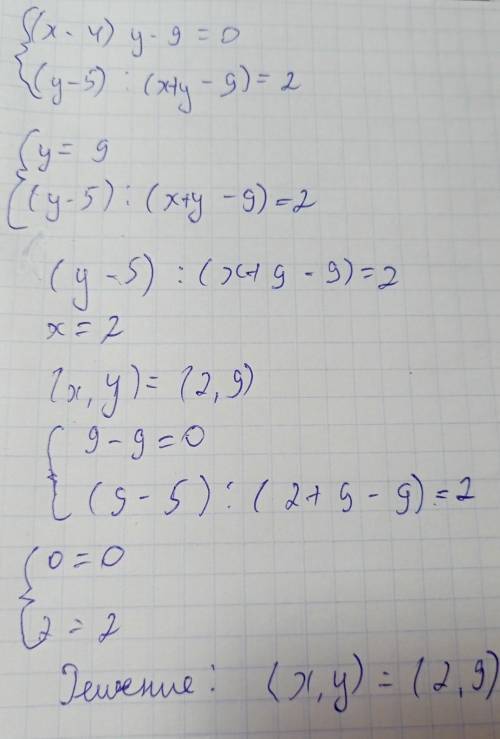 (x - 4) y - 9 = 0
(y - 5) : (x + y - 9) = 2
y = 9
(y - 5) : (x + y - 9) = 2
(y - 5) : (x + 9 - 9) = 2
x = 2
(x, y) = (2, 9)
9 - 9 = 0
(9 - 5) : (2 + 9 - 9) = 2
0 = 0
2 = 2
Решение: (x, y) = (2, 9)